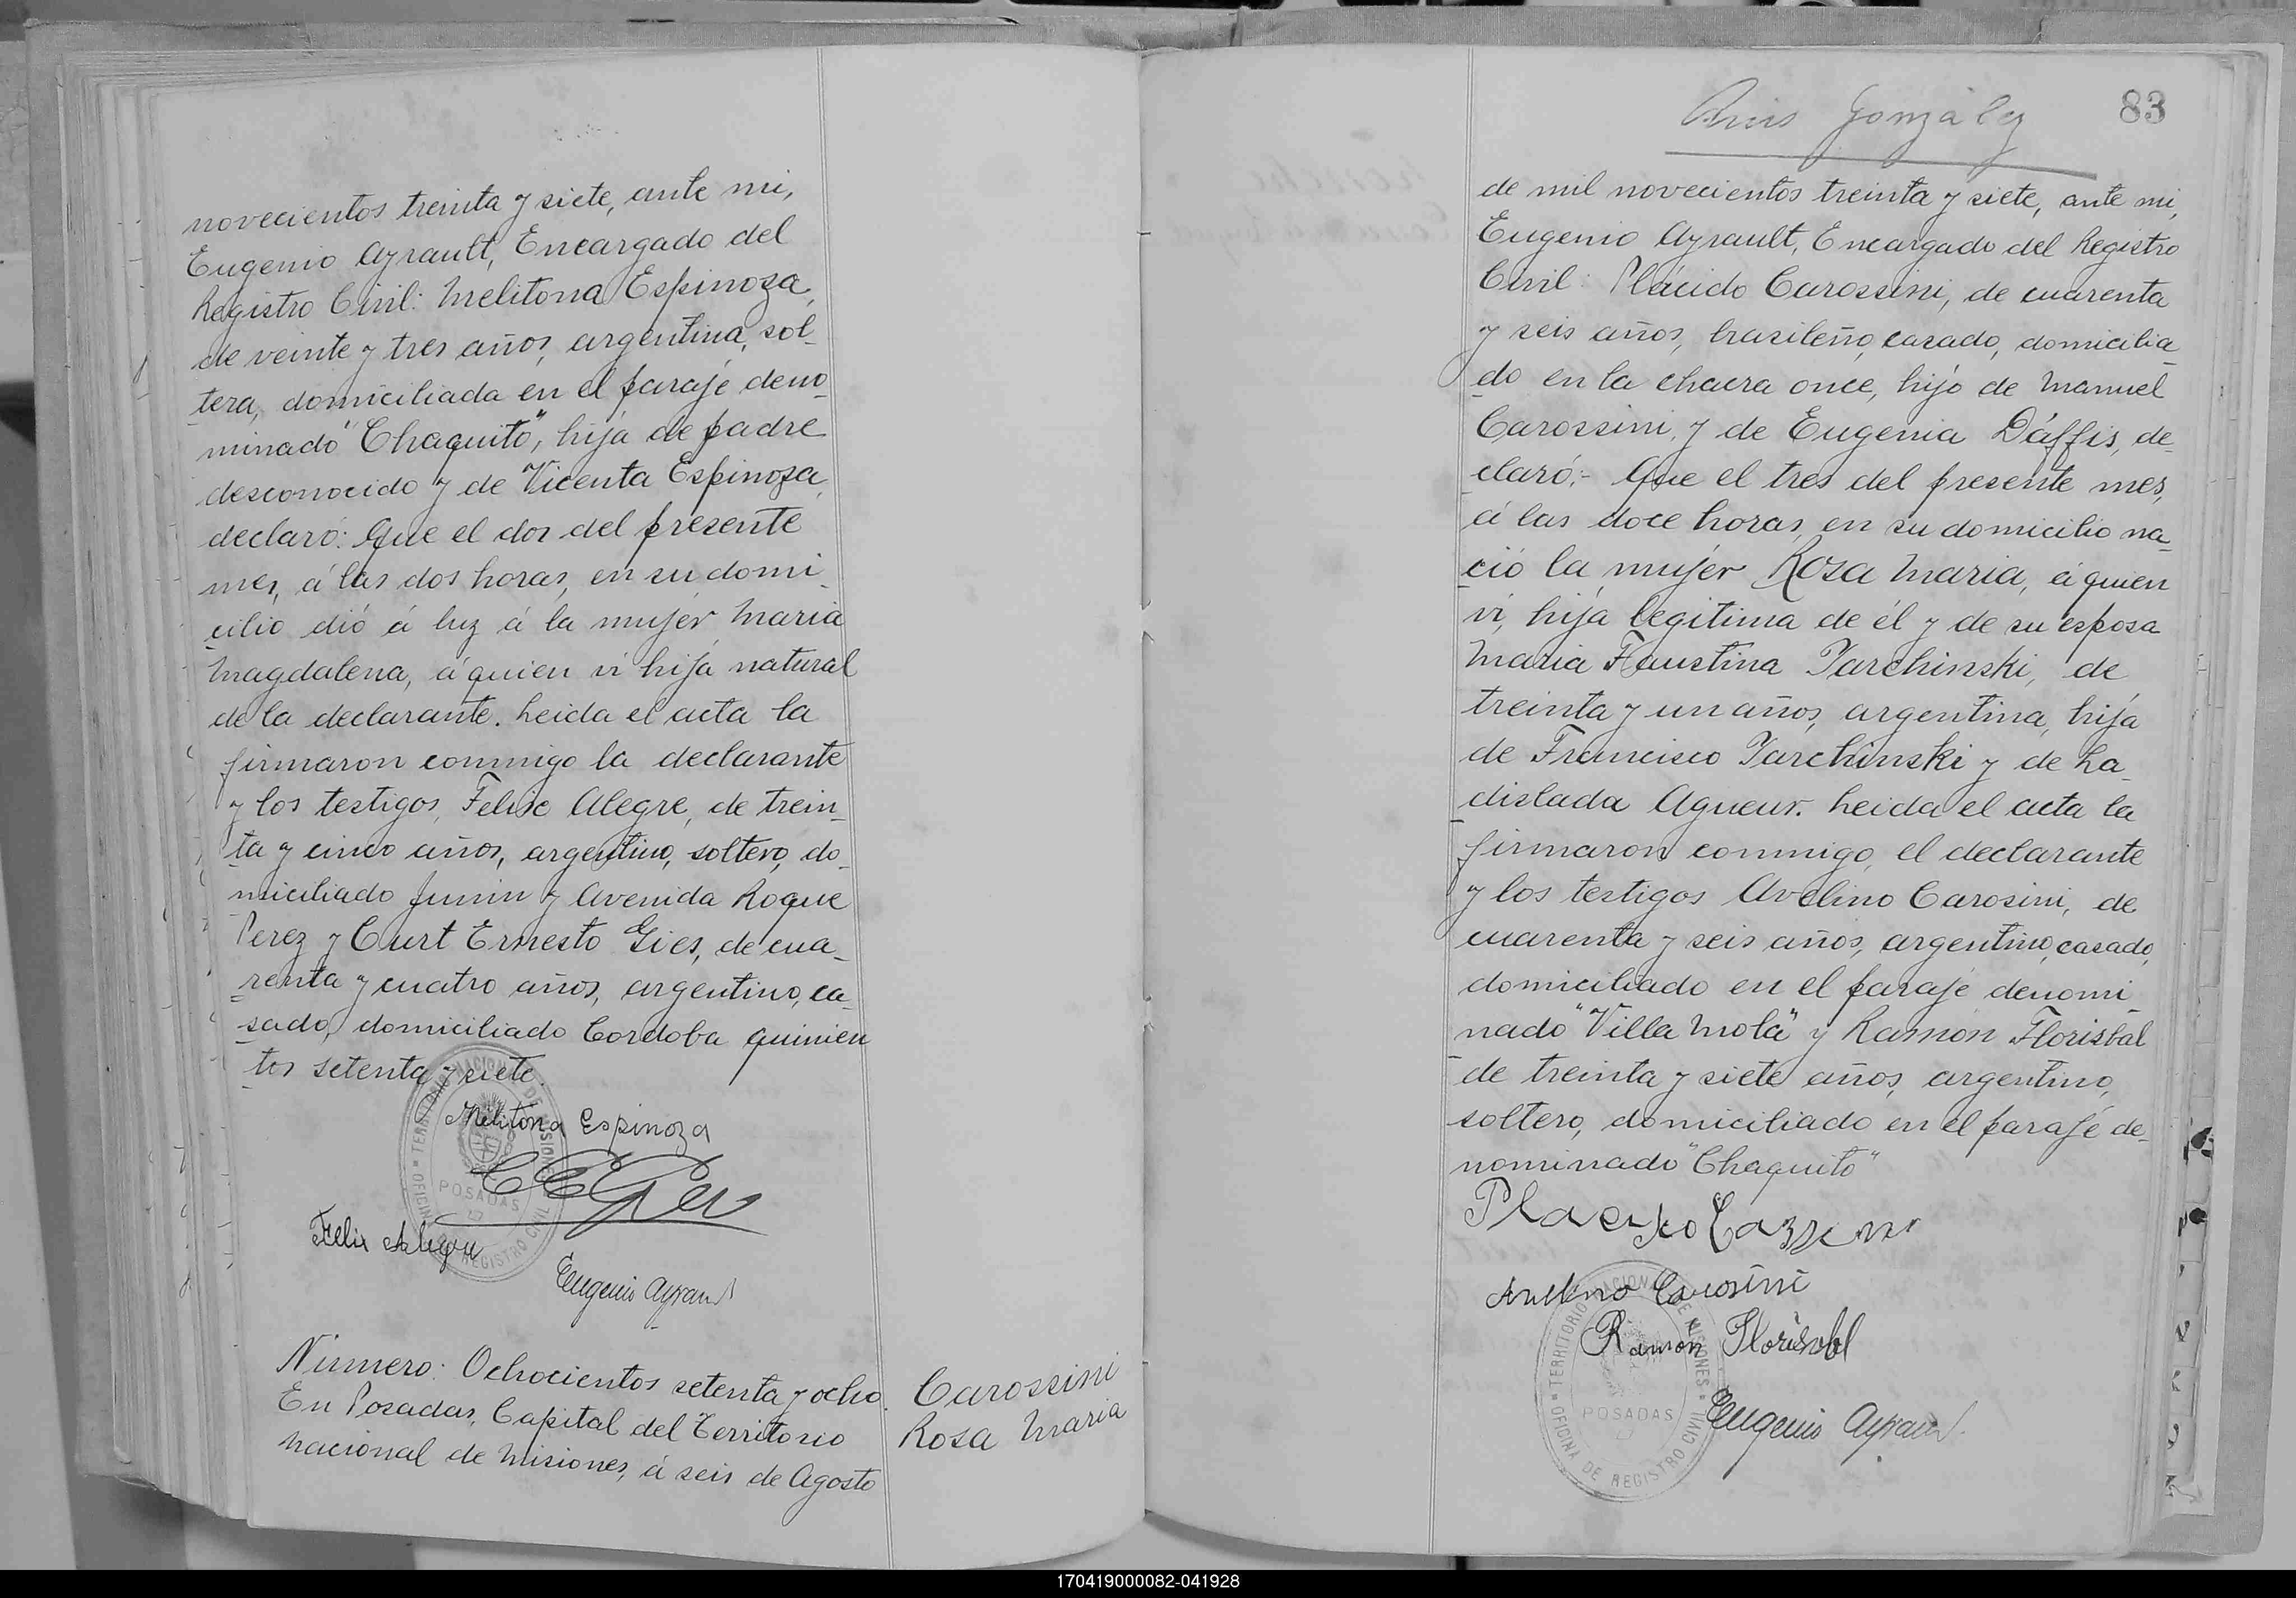 novecientos treinta y siete, ante mi,
Eugenio Ayrault, Encargado del
Registro Civil: Melitona Espinoza,
de veinte y tres años, argentina, sol-
tera, domiciliada en el paraje deno-
minado "Chaquito", hija de padre
desconocido y de Vicenta Espinoza,
declaró: Que el dos del presente
mes, á las dos horas, en su domi-
cilio dió á luz á la mujer Maria
Magdalena, á quien vi hija natural
de la declarante. Leida el acta la
firmaron conmigo la declarante
y los testigos, Felix Alegre, de trein-
ta y cinco años, argentino, soltero, do-
miciliado Junin y Avenida Roque
Perez y Curt Ernesto Gies, de cua-
renta y cuatro años, argentino, ca-
sado, domiciliado Cordoba quinien
tos setenta y siete.
Melitona Espinoza
Felix Alegre
Eugenio Ayrault
TERRITORIO NACIONAL DE MISIONES
POSADAS
OFICINA DE REGISTRO CIVIL
Número: Ochocientos setenta y ocho.
En Posadas, Capital del Territorio
Nacional de Misiones, á seis de Agosto
Carossini
Rosa Maria
González
83
de mil novecientos treinta y siete, ante mi,
Eugenio Ayrault, Encargado del Registro
Civil: Plácido Carossini, de cuarenta
y seis años, brasileño, casado, domicilia
do en la chacra once, hijo de Manuel
Carossini, y de Eugenia Dáffis, de-
claró:- Que el tres del presente mes,
á las doce horas, en su domicilio na-
ció la mujer Rosa Maria, á quien
vi, hija legitima de él y de su esposa
Maria Faustina Tarchinski, de
treinta y un años, argentina, hija
de Francisco Tarchinski y de La-
dislada Agueur. Leida el acta la
firmaron conmigo, el declarante
y los testigos Avelino Carosini, de
cuarenta y seis años, argentino, casado,
domiciliado en el paraje denomi
nado "Villa Mola" y Ramón Florisbal
de treinta y siete años, argentino,
soltero, domiciliado en el paraje de-
nominado "Chaquito"
Placido
Avelino Carosini
Ramón Florisbal
Eugenio Ayrault
TERRITORIO NACIONAL DE MISIONES
POSADAS
OFICINA DE REGISTRO CIVIL
170419000082-041928